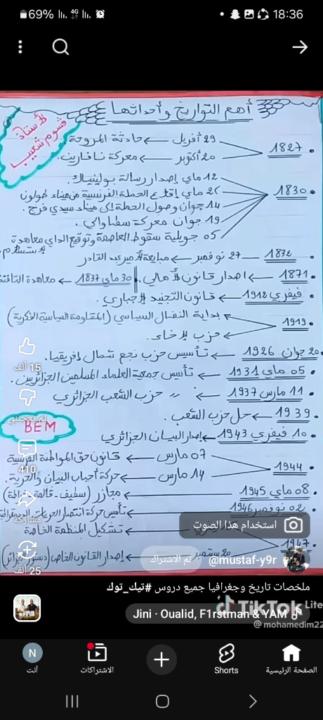 69%
18:36
أهم التواريخ وأحداثها
الأستاذ
قسوم شعيب
1827
29 أفريل ← حادثة المروحة
20 أكتوبر ← معركة نافارين.
1830
12 ماي إصدار رسالة بولينياك
25 ماي إقلاع الحملة الفرنسية من ميناء طولون
14 جوان وصول الحملة إلى ميناء سيدي فرج.
19 جوان معركة سطاوالي
05 جويلية سقوط العاصمة وتوقيع الداي معاهدة
27 نوفمبر ← مبايعة الأمير عبد القادر
1871 ← إصدار قانون الأهالي.
30 ماي 1837 ← معاهدة التافنة
فيفري 1912 ← قانون التجنيد الإجباري.
1919
بداية النضال السياسي (المقاومة السياسية الفكرية)
حزب الإخاء.
20 جوان 1926 ← تأسيس حزب نجم شمال إفريقيا.
05 ماي 1931 ← تأسيس جمعية العلماء المسلمين الجزائريين.
11 مارس 1937 ← حزب الشعب الجزائري
1939 ← حل حزب الشعب.
BEM
10 فيفري 1943 ← إصدار البيان الجزائري
1944
07 مارس ← قانون حق المواطنة الفرنسية
14 مارس ← حركة أحباب البيان والحرية.
08 ماي 1945 ← مجازر (سطيف، قالمة، خراطة)
02 نوفمبر 1946
1947
تشكيل المنظمة الخاصة
20 سبتمبر
15 ألف
410
25 ألف
استخدام هذا الصوت
@mustaf-y9r
تم الاشتراك
ملخصات تاريخ وجغرافيا جميع دروس #تيك_توك
Jini · Oualid, F1rstman & YAM
TikTok Lite
@mohamedim22
الصفحة الرئيسية
Shorts
الاشتراكات
N
أنت